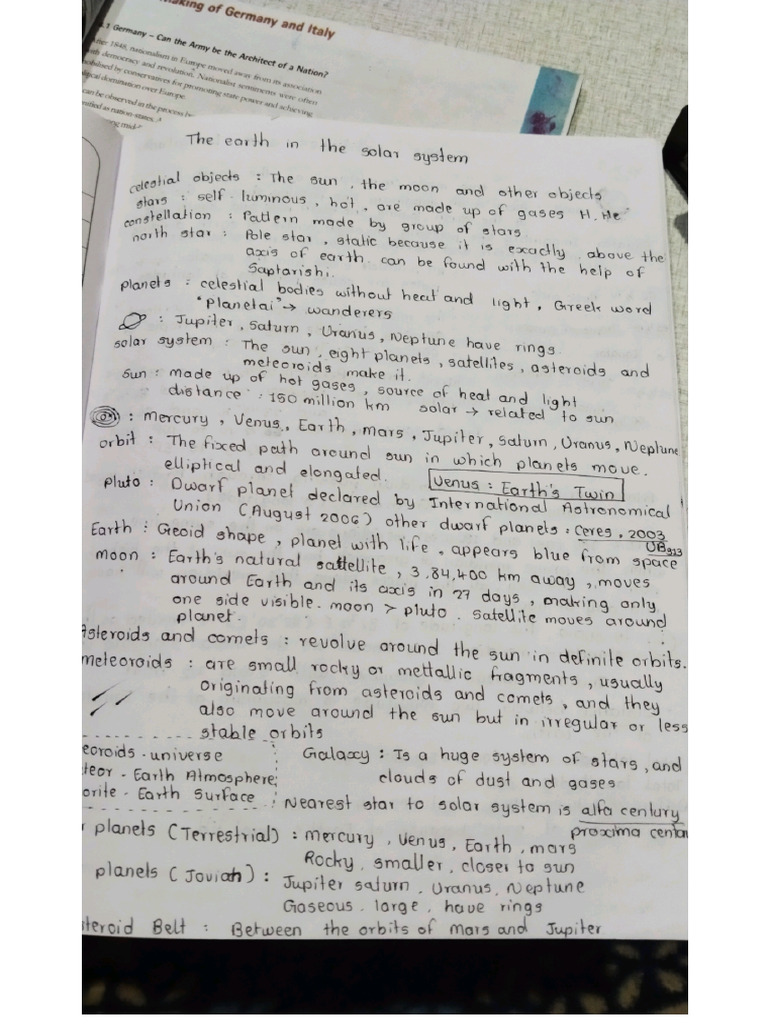 aking of Germany and Italy
.1 Germany – Can the Army be the Architect of a Nation?
After 1848, nationalism in Europe moved away from its association
with democracy and revolution. Nationalist sentiments were often
mobilised by conservatives for promoting state power and achieving
political domination over Europe.
can be observed in the process
The earth in the solar system
celestial objects : The sun , the moon and other objects
stars : self-luminous , hot , are made up of gases H. He
constellation : Pattern made by group of stars.
north star : Pole star , static because it is exactly above the
axis of earth. can be found with the help of
Saptarishi.
planets : celestial bodies without heat and light , Greek word
"Planetai" → wanderers
: Jupiter, Saturn, Uranus, Neptune have rings.
solar system : The sun , eight planets , satellites , asteroids and
meteoroids make it.
Sun : made up of hot gases , source of heat and light
distance : 150 million km solar → related to sun
: mercury , Venus, Earth, mars , Jupiter, Saturn, Uranus, Neptune
orbit : The fixed path around sun in which planets move.
elliptical and elongated. Venus : Earth's Twin
Pluto : Dwarf planet declared by International Astronomical
Union (August 2006) other dwarf planets : Ceres , 2003
UB313
Earth : Geoid shape , planet with life , appears blue from space
moon : Earth's natural sattellite , 3,84,400 km away , moves
around Earth and its axis in 27 days , making only
one side visible. moon > pluto . Satellite moves around
planet.
Asteroids and comets : revolve around the sun in definite orbits.
meteoroids : are small rocky or mettallic fragments , usually
originating from asteroids and comets , and they
also move around the sun but in irregular or less
stable orbits
eoroids - universe
teor - Earth Atmosphere
orite - Earth Surface
Galaxy : Is a huge system of stars , and
clouds of dust and gases
Nearest star to solar system is alfa century
proxima centa
r planets (Terrestrial) : mercury , Venus, Earth , mars
Rocky , smaller , closer to sun
planets (Jovian) : Jupiter saturn , Uranus, Neptune
Gaseous . large , have rings
steroid Belt : Between the orbits of mars and Jupiter